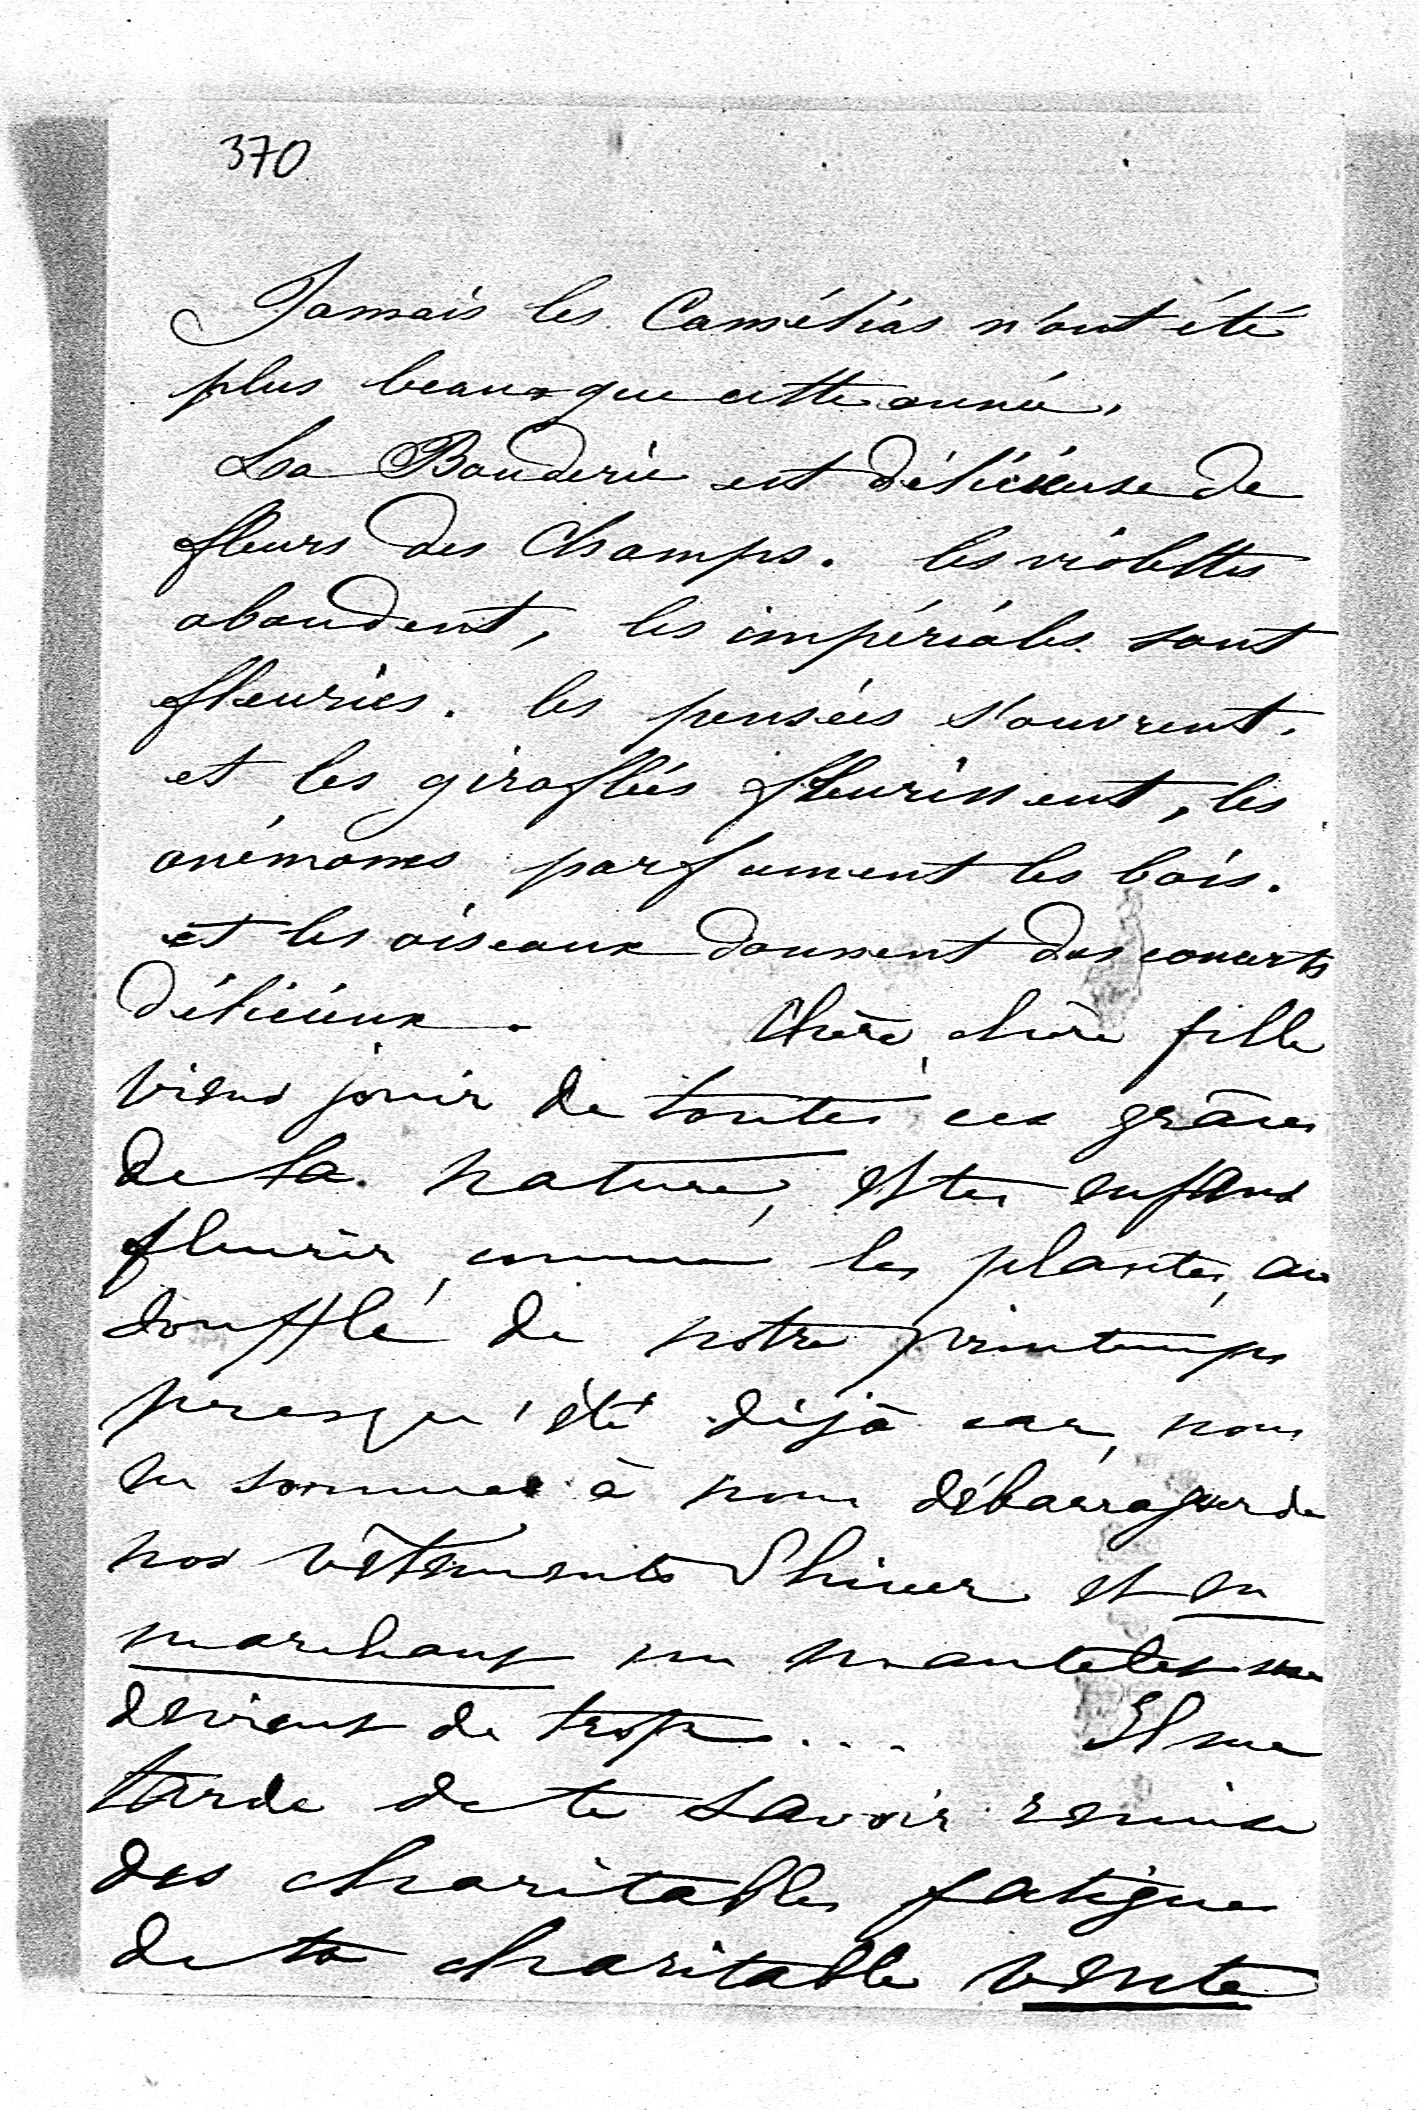 370
Jamais les Camélias n'ont été
plus beaux que cette année.
La Bouderie est délicieuse de
fleurs des Champs. les violettes
abondent, les impériales sont
fleuries. les pensées s'ouvrent.
et les giroflées fleurissent, les
anémones parfument les bois.
et les oiseaux donnent des concerts
délicieux. Chère, chère fille
viens jouir de toutes ces grâces
de la nature, et tes enfans
fleurir comme les plantes, au
souffle de notre printemps
presqu'été déjà car, nous
en sommes à nous débarrasser de
nos vêtements d'hiver et en
marchant un mantelet
devient de trop... Il me
tarde de te savoir remise
des charitables fatigues
de ta charitable vente